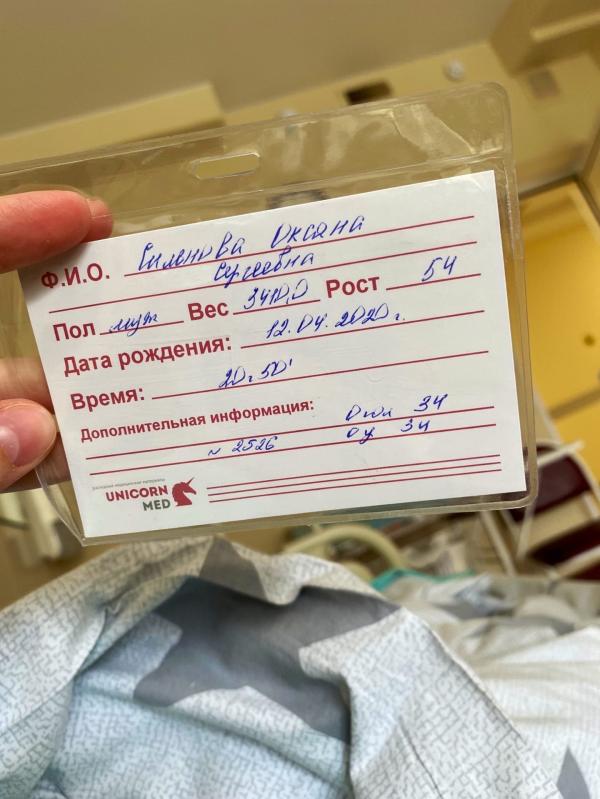 Ф.И.О. Силенова Оксана
Сергеевна
Пол муж Вес 3410,0 Рост 54
Дата рождения: 12.04.2020 г.
Время: 20ч 50'
Дополнительная информация: Огол 34
№ 2526 Огр 34
расходные медицинские материалы
UNICORN
MED